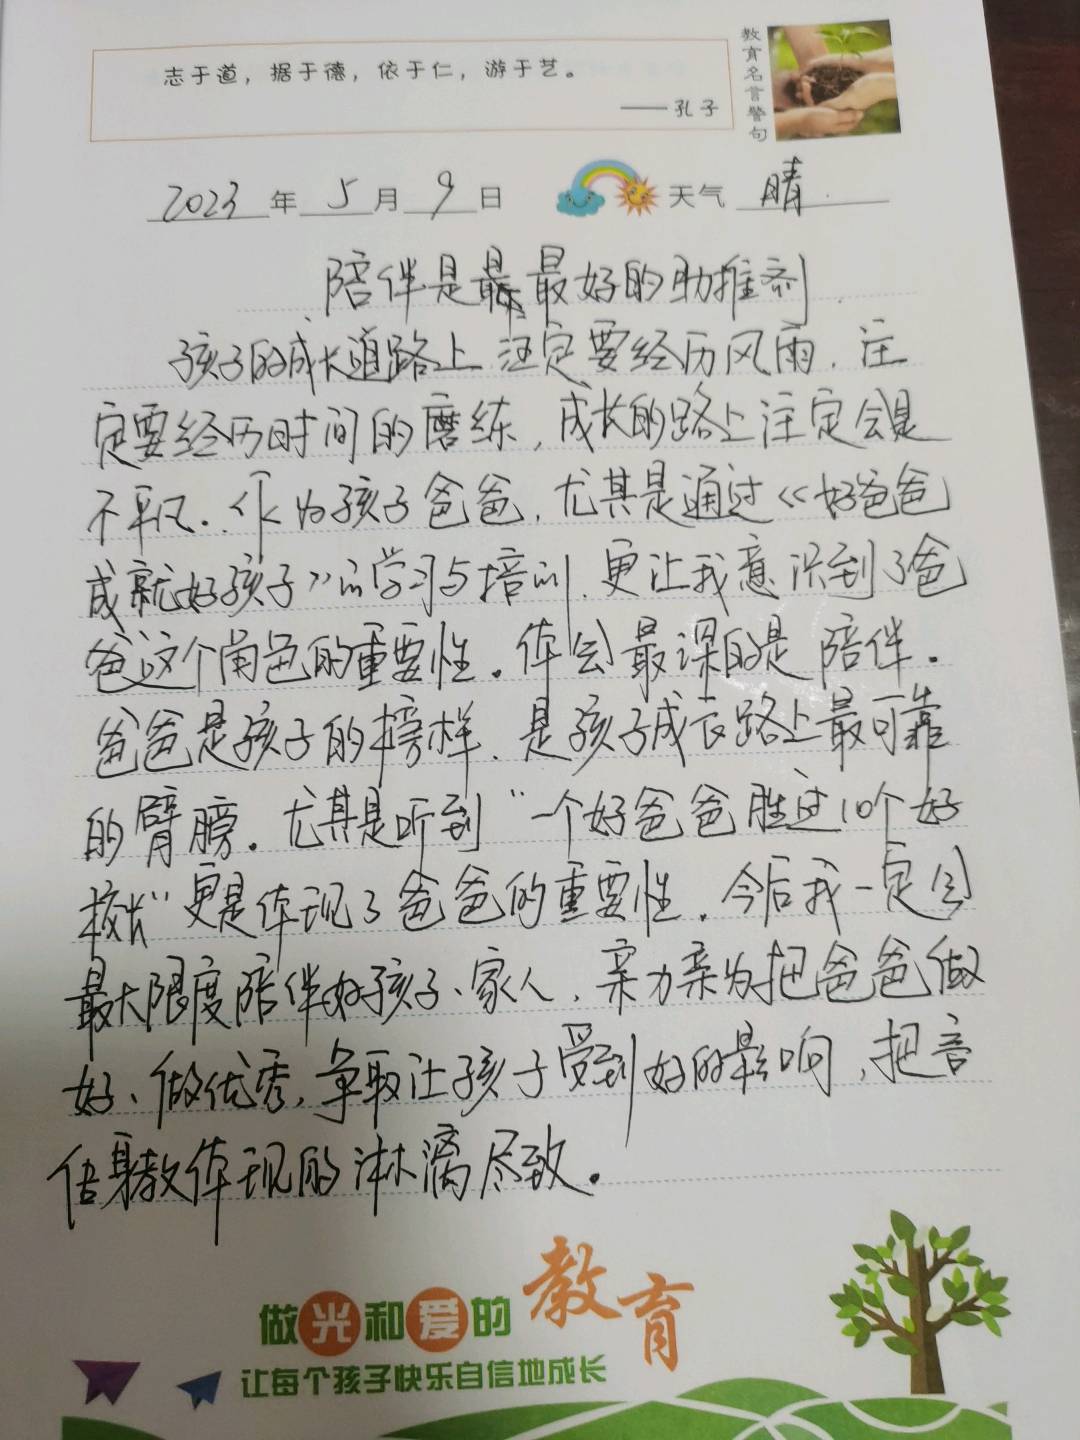 志于道，据于德，依于仁，游于艺。
——孔子
教育名言警句
2023年5月9日 天气 晴.
陪伴是最最好的助推剂
孩子的成长道路上,注定要经历风雨,注
定要经历时间的磨练,成长的路上注定会是
不平凡.作为孩子爸爸,尤其是通过《好爸爸
成就好孩子》的学习与培训,更让我意识到了爸
爸这个角色的重要性.体会最深的是陪伴.
爸爸是孩子的榜样,是孩子成长路上最可靠
的臂膀.尤其是听到"一个好爸爸胜过10个好
校长"更是体现了爸爸的重要性.今后我一定会
最大限度陪伴好孩子、家人,亲力亲为把爸爸做
好、做优秀,争取让孩子受到好的影响,把言
传身教体现的淋漓尽致.
做光和爱的教育
让每个孩子快乐自信地成长